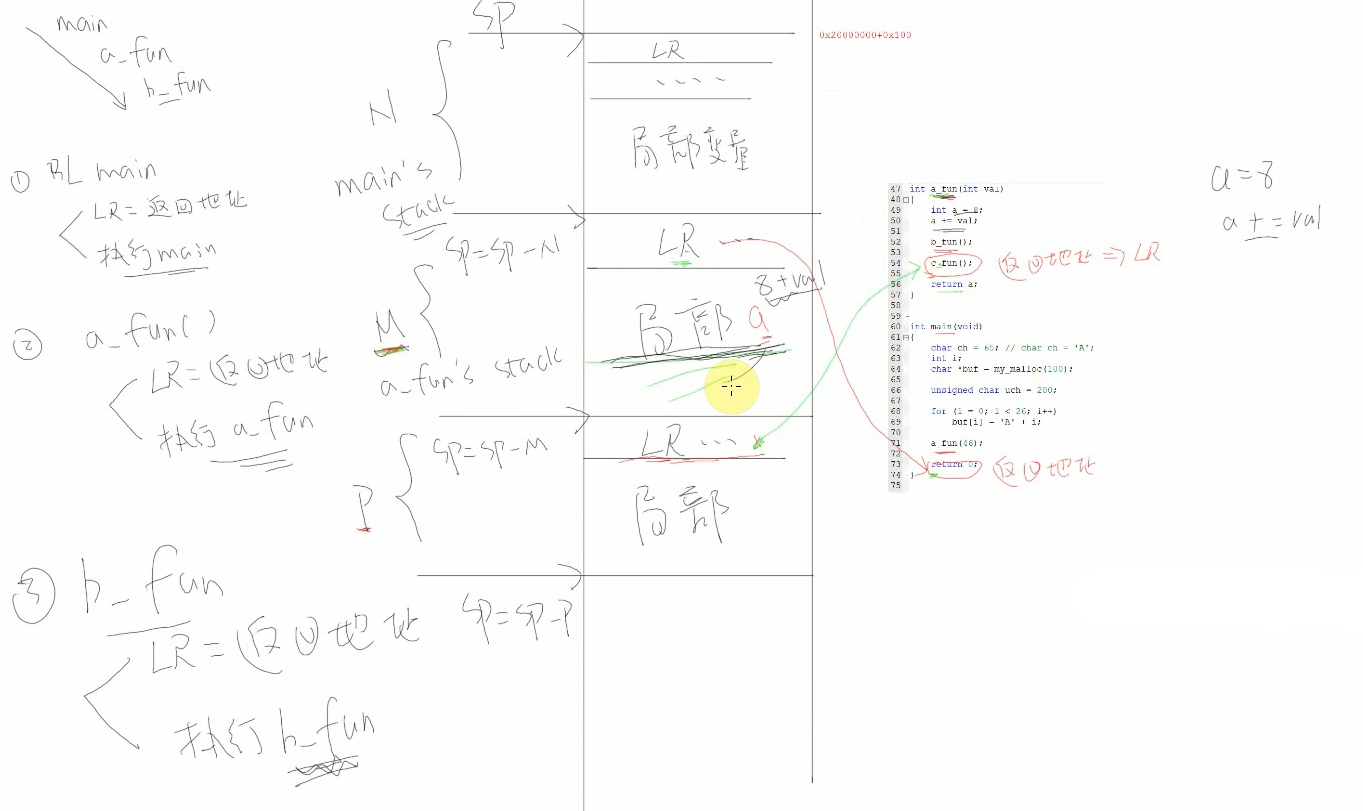 main
a_fun
b_fun
① BL main
LR=返回地址
执行main
② a_fun()
LR=返回地址
执行 a_fun
③ b_fun
LR=返回地址
执行 b_fun
SP
N
main's
stack
SP=SP-N
M
a_fun's stack
SP=SP-M
P
SP=SP-P
LR
....
局部变量
LR
8+val
局部 a
LR ...
局部
0x20000000+0x100
47 int a_fun(int val)
48 {
49 int a = 8;
50 a += val;
51
52 b_fun();
53
54 c_fun();
55
56 return a;
57 }
58
59
60 int main(void)
61 {
62 char ch = 65; // char ch = 'A';
63 int i;
64 char *buf = my_malloc(100);
65
66 unsigned char uch = 200;
67
68 for (i = 0; i < 26; i++)
69 buf[i] = 'A' + i;
70
71 a_fun(46);
72
73 return 0;
74 }
75
返回地址 => LR
返回地址
a=8
a += val